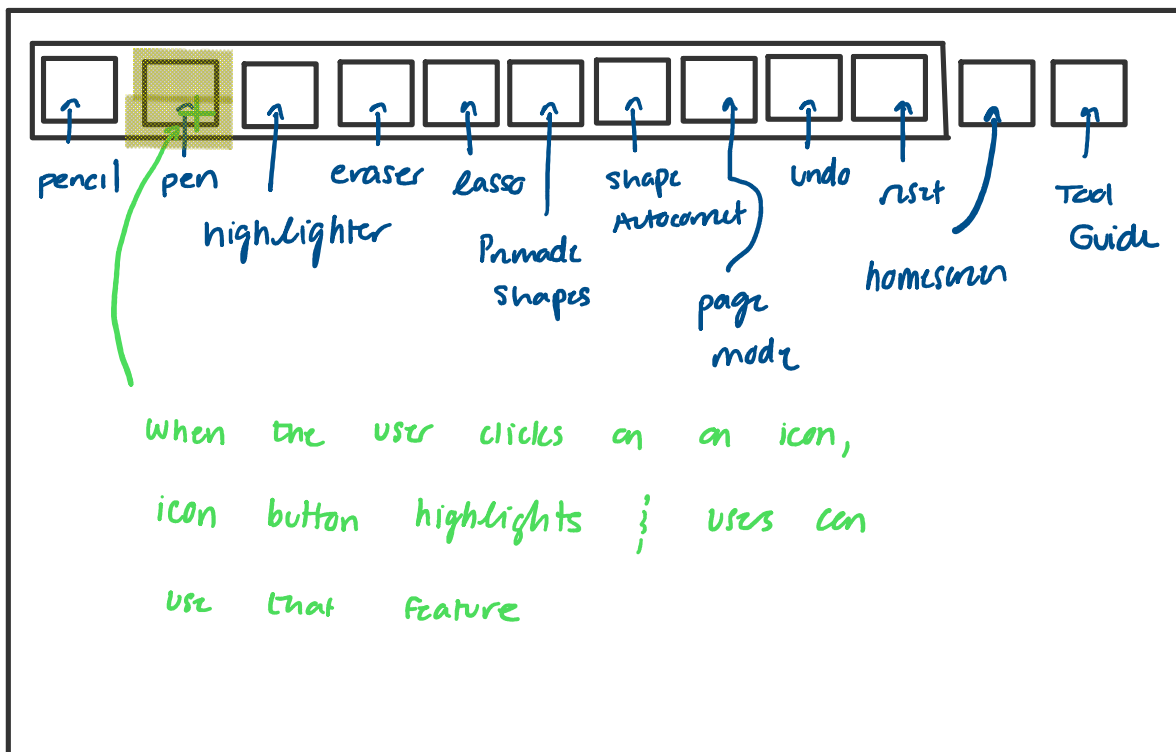 pencil
pen
highlighter
eraser
lasso
Premade
shapes
shape
Autocorrect
page
mode
undo
reset
homescreen
Tool
Guide
when the user clicks on an icon,
icon button highlights & users can
use that feature